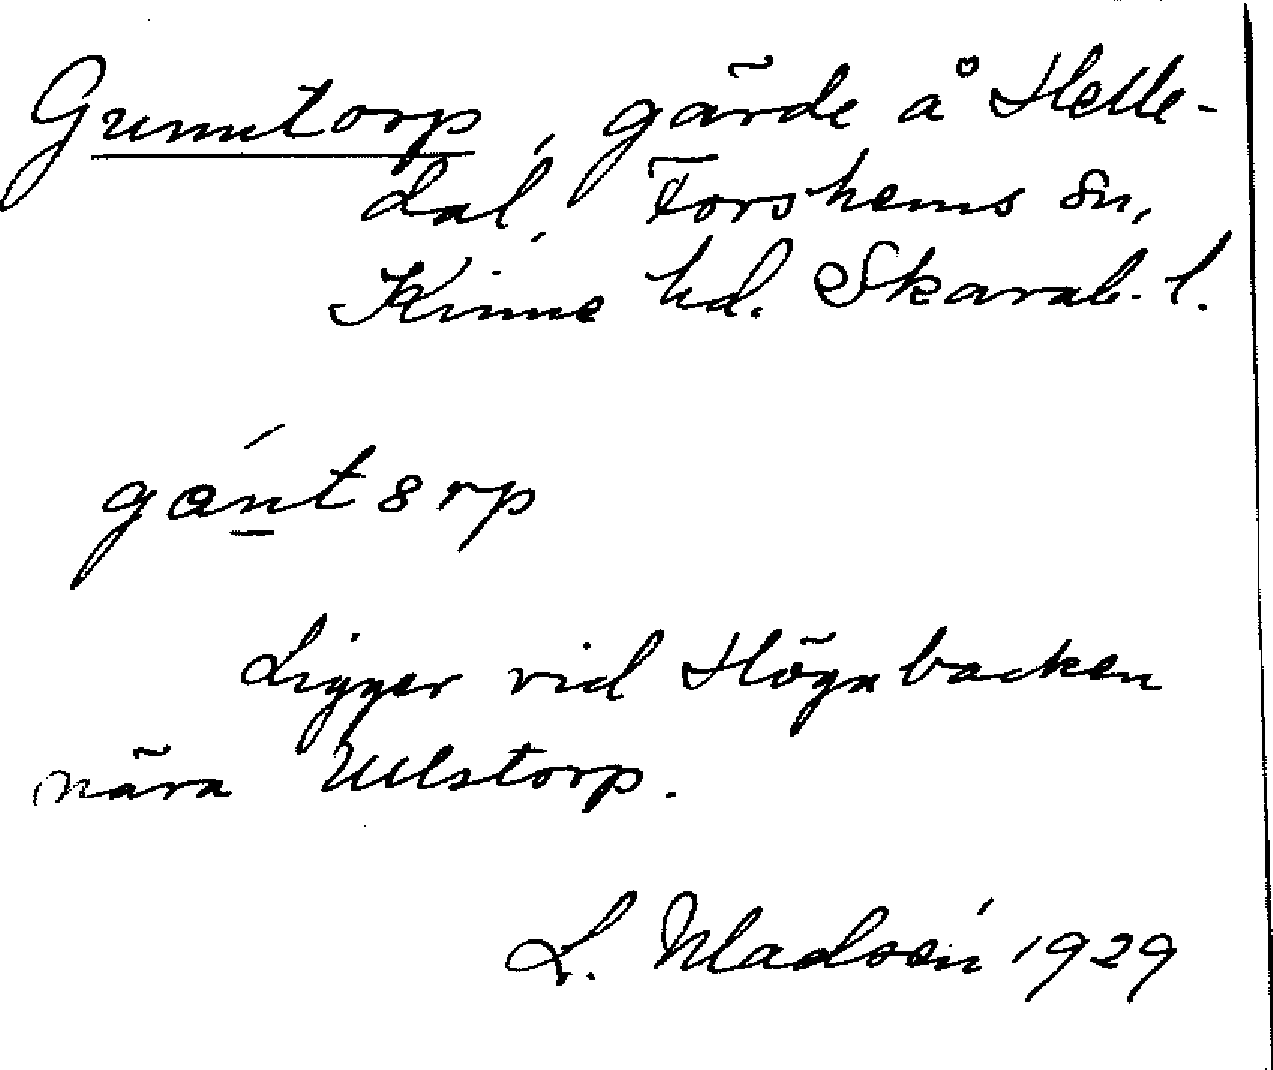 Gunntorp, gärde å Helle-
dal, Forshems sn,
Kinne hd. Skarab. l.
gɵntɷrp
Ligger vid Högabacken
nära Ulstorp.
L. Madsén 1929